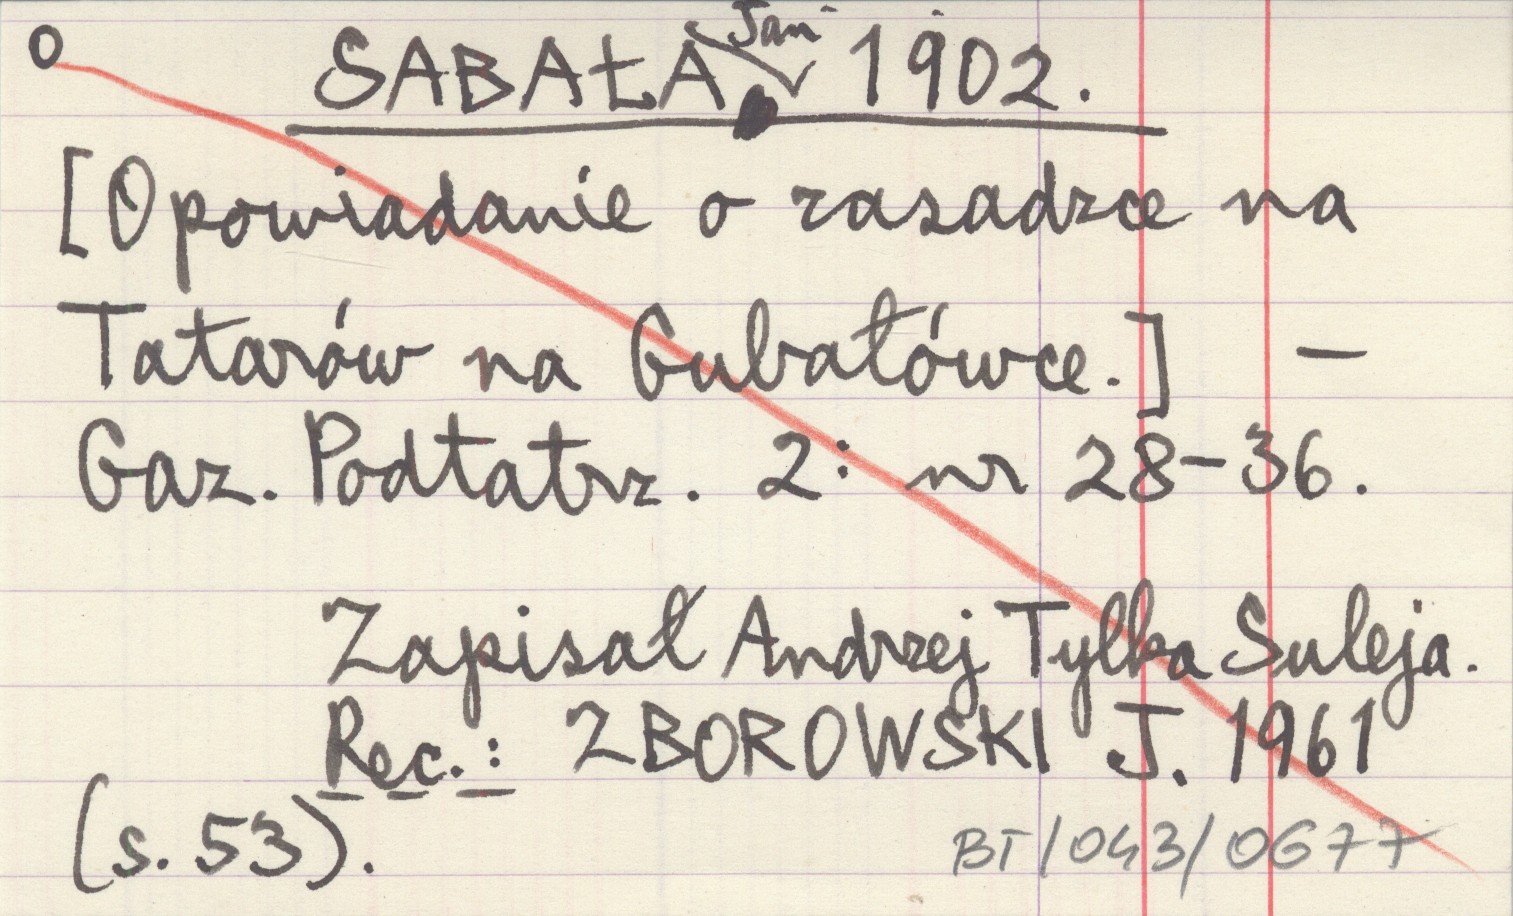 o
SABAŁA Jan 1902.
[Opowiadanie o zasadzce na
Tatarów na Gubałówce.] —
Gaz. Podtatrz. 2: nr 28-36.
Zapisał Andrzej Tylka Suleja.
Rec.: ZBOROWSKI J. 1961
(s. 53).
BT/043/0677